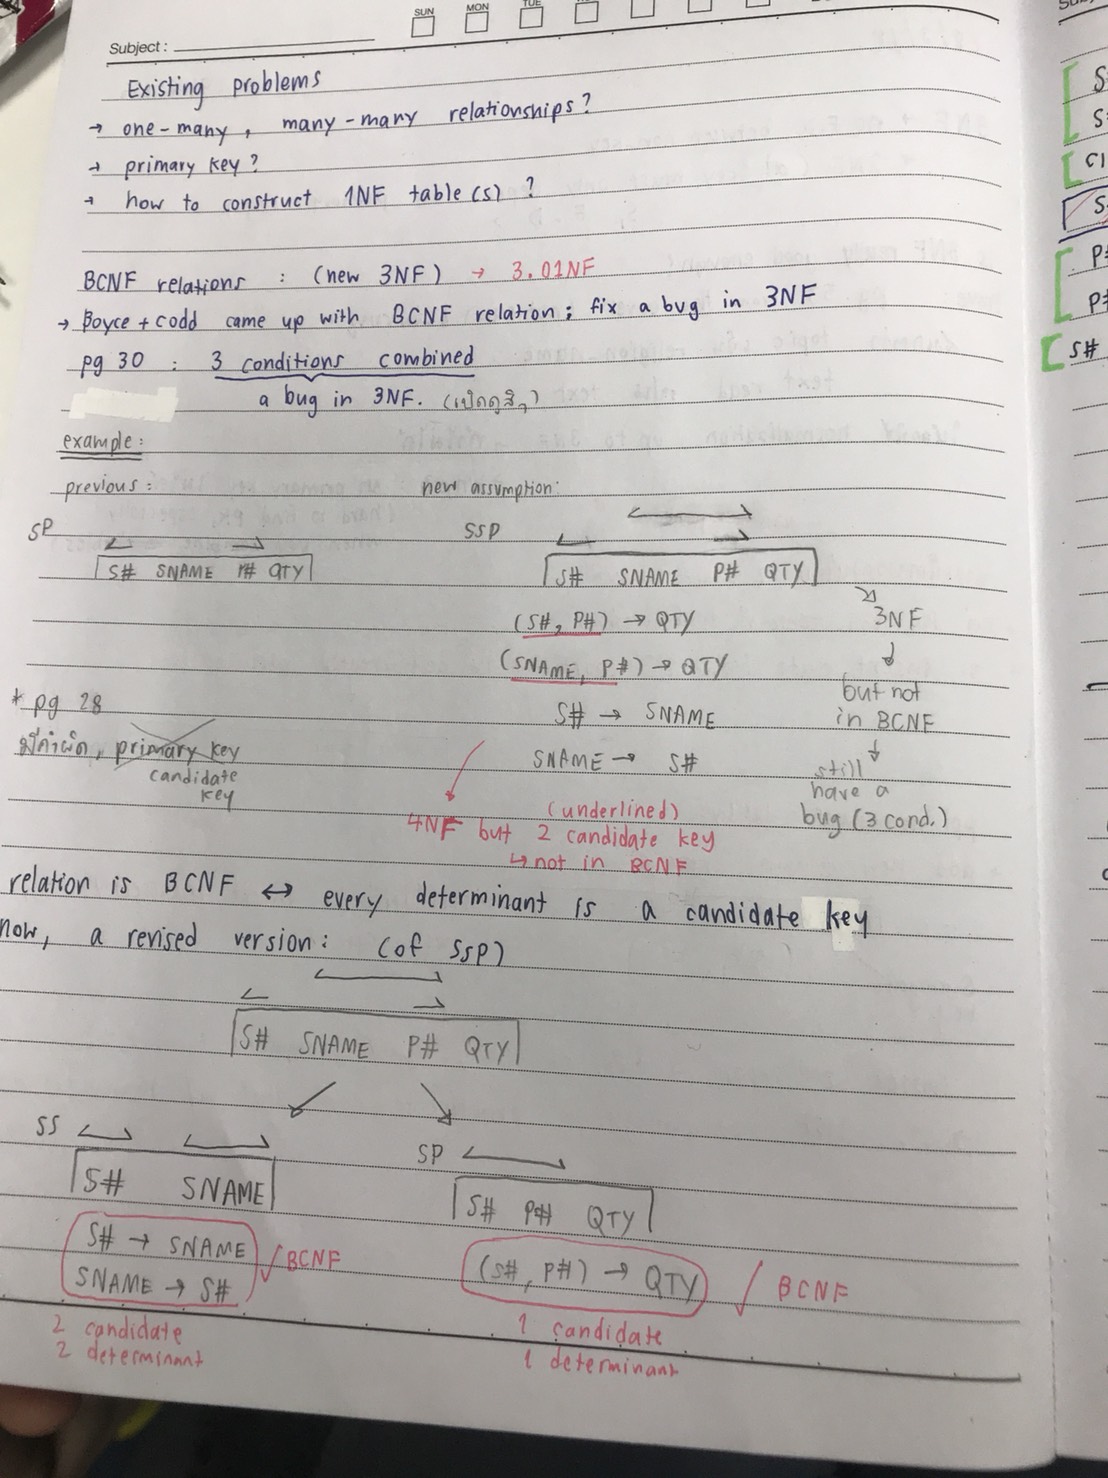 SUN MON TUE
Subject :
Existing problems
→ one-many, many-many relationships?
→ primary key?
→ how to construct 1NF table(s) ?
BCNF relations : (new 3NF) → 3.01NF
→ Boyce + codd came up with BCNF relation; fix a bug in 3NF
pg 30 : 3 conditions combined
a bug in 3NF.
example:
previous : new assumption:
SP SSP
S# SNAME P# QTY
S# SNAME P# QTY
3NF
(S#, P#) → QTY
(SNAME, P#) → QTY
but not
in BCNF
* pg 28
S# → SNAME
primary key
candidate
key
SNAME → S#
still
have a
bug (3 cond.)
(underlined)
4NF but 2 candidate key
↳ not in BCNF
relation is BCNF ↔ every determinant is a candidate key
now, a revised version: (of SSP)
S# SNAME P# QTY
SS SP
S# SNAME
S# P# QTY
S# → SNAME
SNAME → S#
✓ BCNF
(S#, P#) → QTY
✓ BCNF
2 candidate
2 determinant
1 candidate
1 determinant
S
S
Cl
S
P#
P#
S#